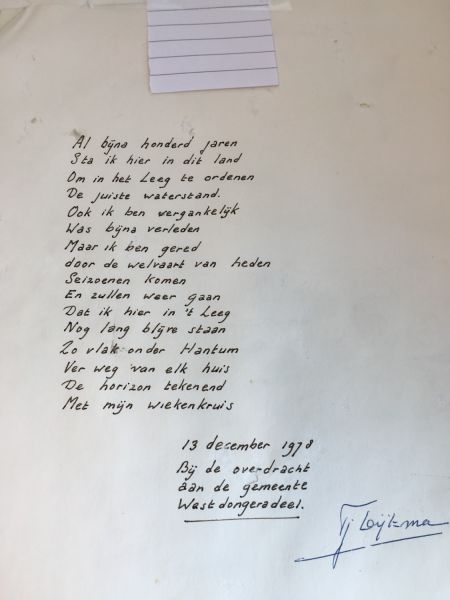 Al bijna honderd jaren
Sta ik hier in dit land
Om in het Leeg te ordenen
De juiste waterstand.
Ook ik ben vergankelijk
Was bijna verleden
Maar ik ben gered
door de welvaart van heden
Seizoenen komen
En zullen weer gaan
Dat ik hier in 't Leeg
Nog lang blijve staan
Zo vlak onder Hantum
Ver weg van elk huis
De horizon tekenend
Met mijn wiekenkruis
13 december 1978
Bij de overdracht
aan de gemeente
Westdongeradeel.